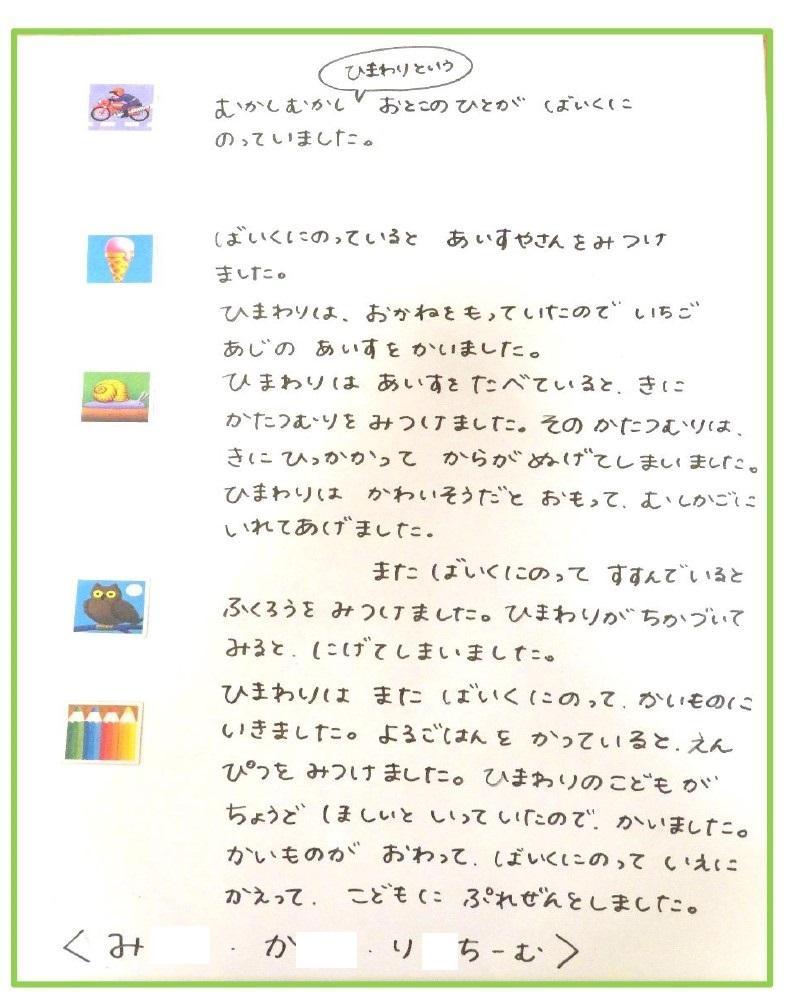 ひまわりという
むかしむかし おとこのひとが ばいくに
のっていました。
ばいくにのっていると あいすやさんをみつけ
ました。
ひまわりは、おかねをもっていたので いちご
あじの あいすをかいました。
ひまわりは あいすを たべていると、きに
かたつむりを みつけました。その かたつむりは、
きに ひっかかって からがぬげてしまいました。
ひまわりは かわいそうだと おもって、むしかごに
いれてあげました。
また ばいくにのって すすんでいると
ふくろうを みつけました。ひまわりが ちかづいて
みると、にげてしまいました。
ひまわりは また ばいくにのって、かいものに
いきました。よるごはんを かっていると、えん
ぴつを みつけました。ひまわりのこどもが
ちょうど ほしいと いっていたので、かいました。
かいものが おわって、ばいくにのって いえに
かえって、 こどもに ぷれぜんとしました。
<み ・か ・り ちーむ>